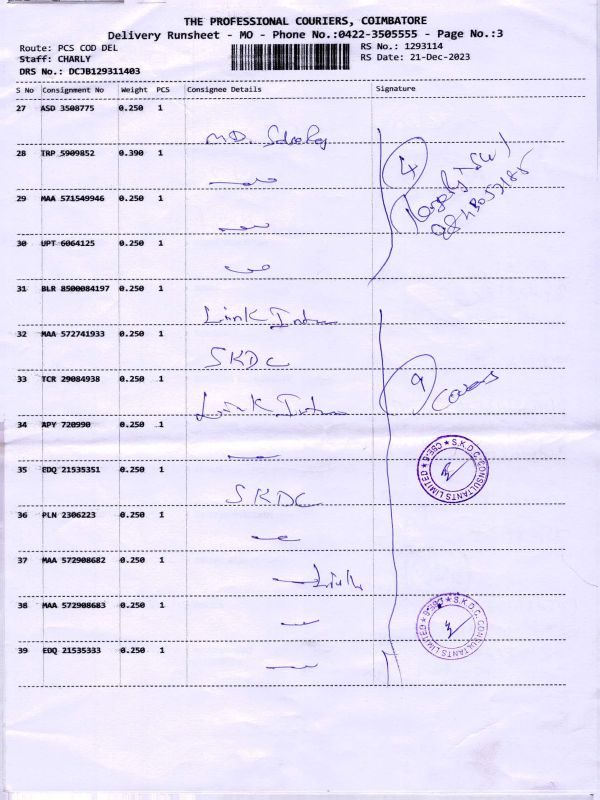 THE PROFESSIONAL COURIERS, COIMBATORE
Delivery Runsheet - MO - Phone No.:0422-3505555 - Page No.:3
Route: PCS COD DEL
RS No.: 1293114
Staff: CHARLY
RS Date: 21-Dec-2023
DRS No.: DCJB129311403
S No Consignment No Weight PCS Consignee Details Signature
27 ASD 3508775 0.250 1
28 TRP 5909852 0.390 1
4
29 MAA 571549946 0.250 1
30 UPT 6064125 0.250 1
31 BLR 8500084197 0.250 1
Link
32 MAA 572741933 0.250 1
SKDC
33 TCR 29084938 0.250 1
9
Link
34 APY 720990 0.250 1
35 EDQ 21535351 0.250 1
S.K.D.C. CONSULTANTS LIMITED ★ CBE-6 ★
SKDC
36 PLN 2306223 0.250 1
37 MAA 572908682 0.250 1
38 MAA 572908683 0.250 1
S.K.D.C. CONSULTANTS LIMITED ★ CBE-6 ★
39 EDQ 21535333 0.250 1